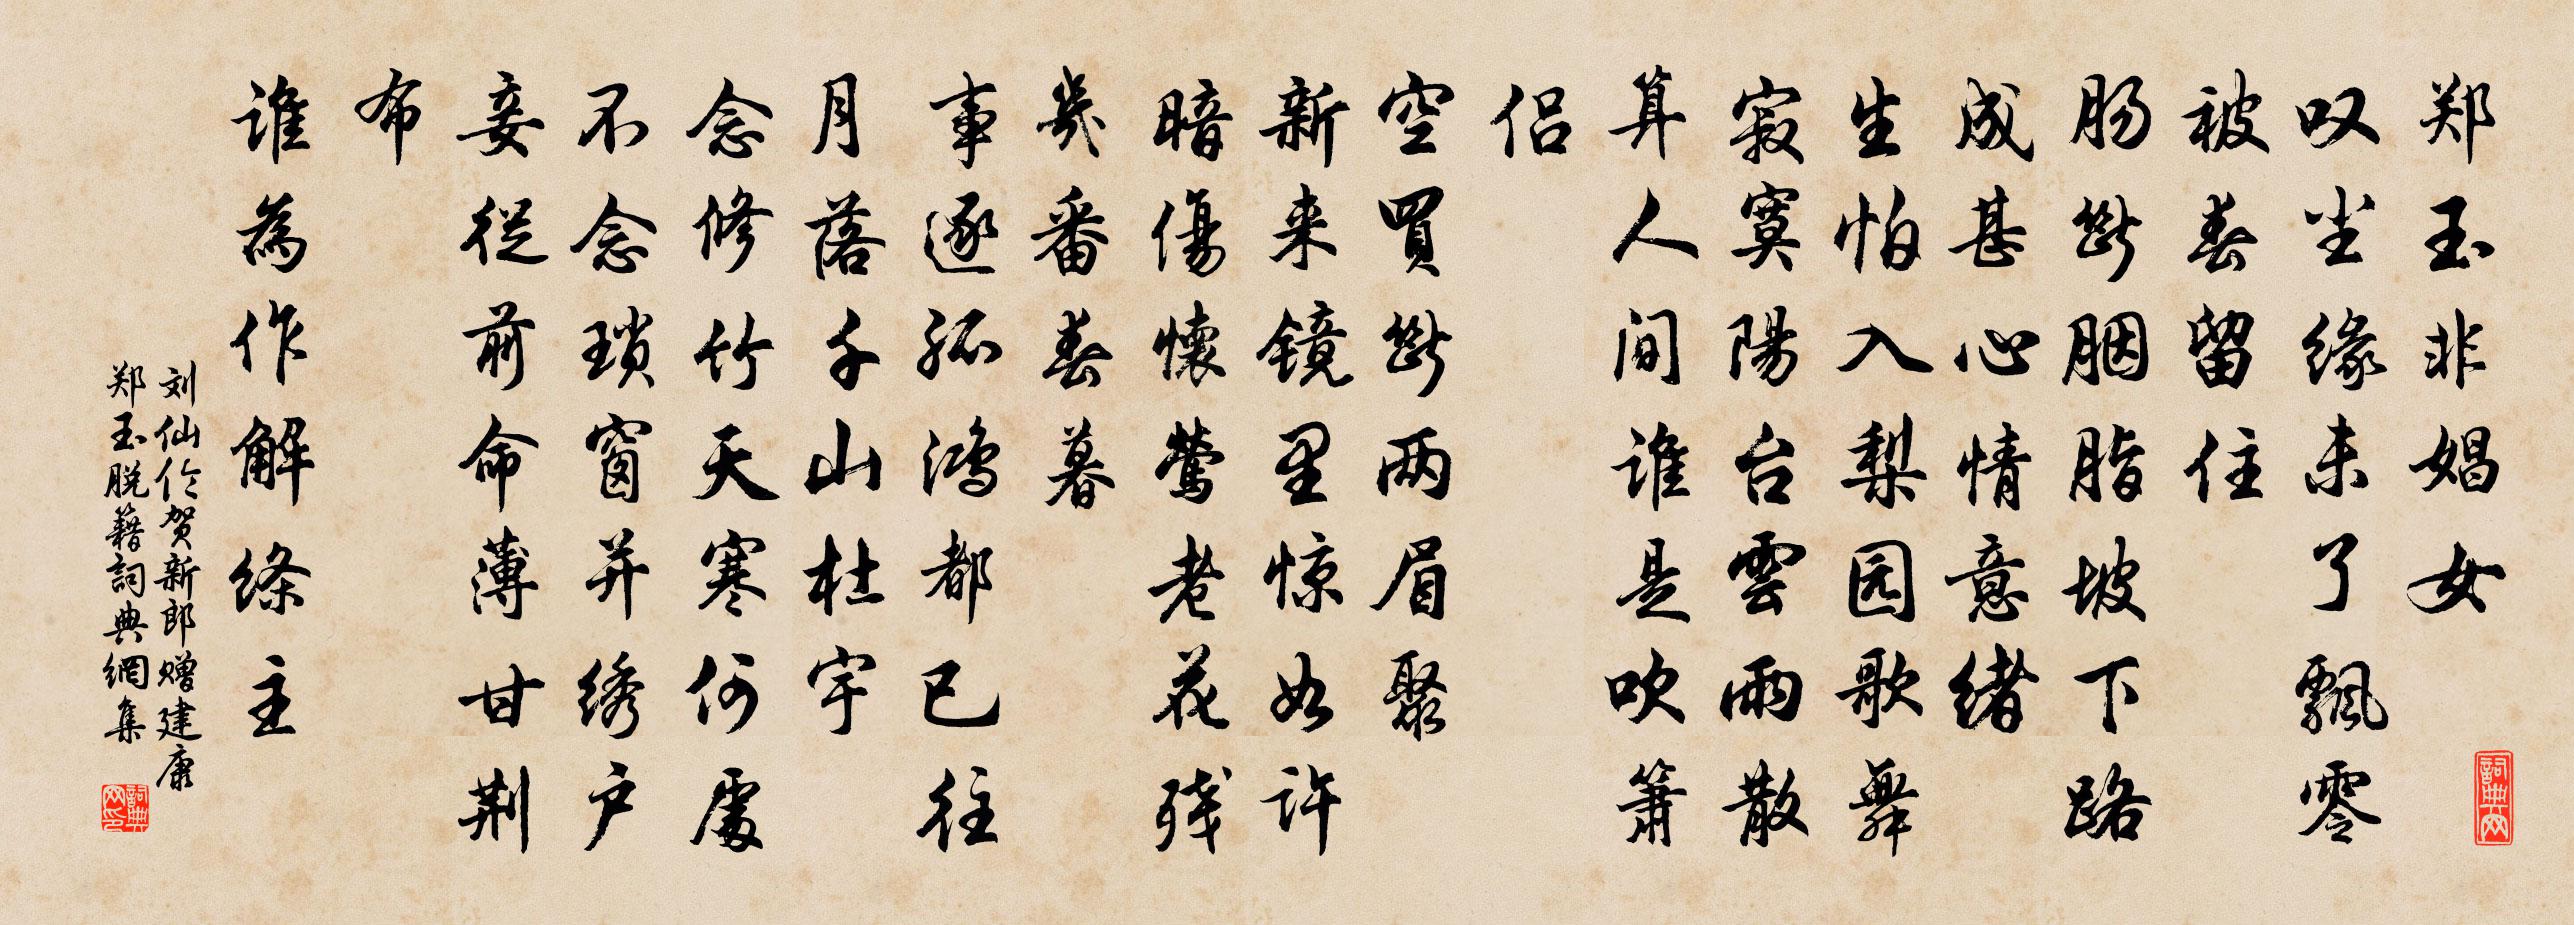 郑玉非娼女
叹尘缘未了飘零
被春留住
肠断胭脂坡下路
成甚心情意绪
生怕入梨园歌舞
寂寞陽台雲雨散
算人间谁是吹箫
侣
空買断两眉聚
新来镜里惊如许
暗傷懷莺老花残
幾番春暮
事逐孤鸿都已往
月落千山杜宇
念修竹天寒何處
不念瑣窗并绣户
妾從前命薄甘荆
布
谁為作解绦主
刘仙伦贺新郎赠建康
郑玉脱籍詞典網集
詞典网
詞典网印